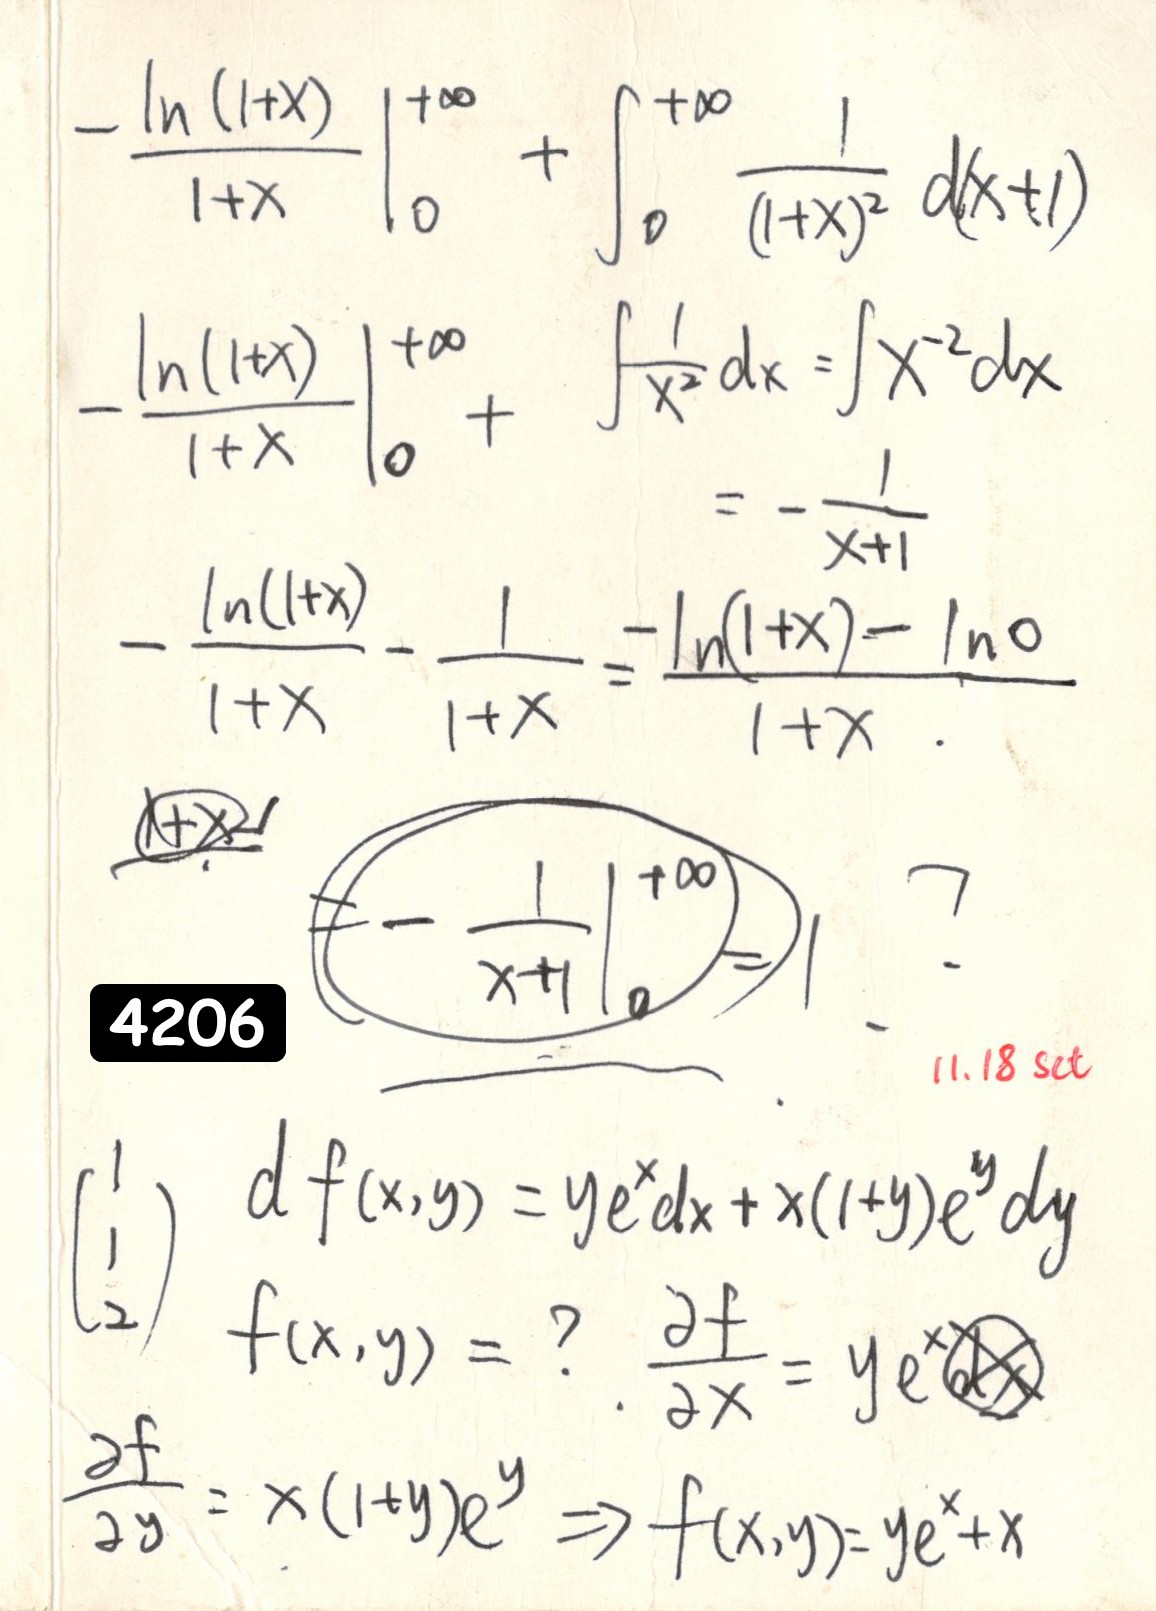 -\frac{ln(1+x)}{1+x}|_0^{+∞} + ∫_0^{+∞} \frac{1}{(1+x)^2} d(x+1)
-\frac{ln(1+x)}{1+x}|_0^{+∞} + ∫\frac{1}{x^2}dx = ∫x^{-2}dx
= -\frac{1}{x+1}
-\frac{ln(1+x)}{1+x} - \frac{1}{1+x} = \frac{-ln(1+x) - ln0}{1+x}.
1+x
= -\frac{1}{x+1}|_0^{+∞} = 1 ?
4206
11.18 set
\begin{pmatrix}1\\1\\2\end{pmatrix} df(x,y) = ye^xdx + x(1+y)e^ydy
f(x,y) = ? . \frac{∂f}{∂x} = ye^x dx
\frac{∂f}{∂y} = x(1+y)e^y ⇒ f(x,y) = ye^x + x